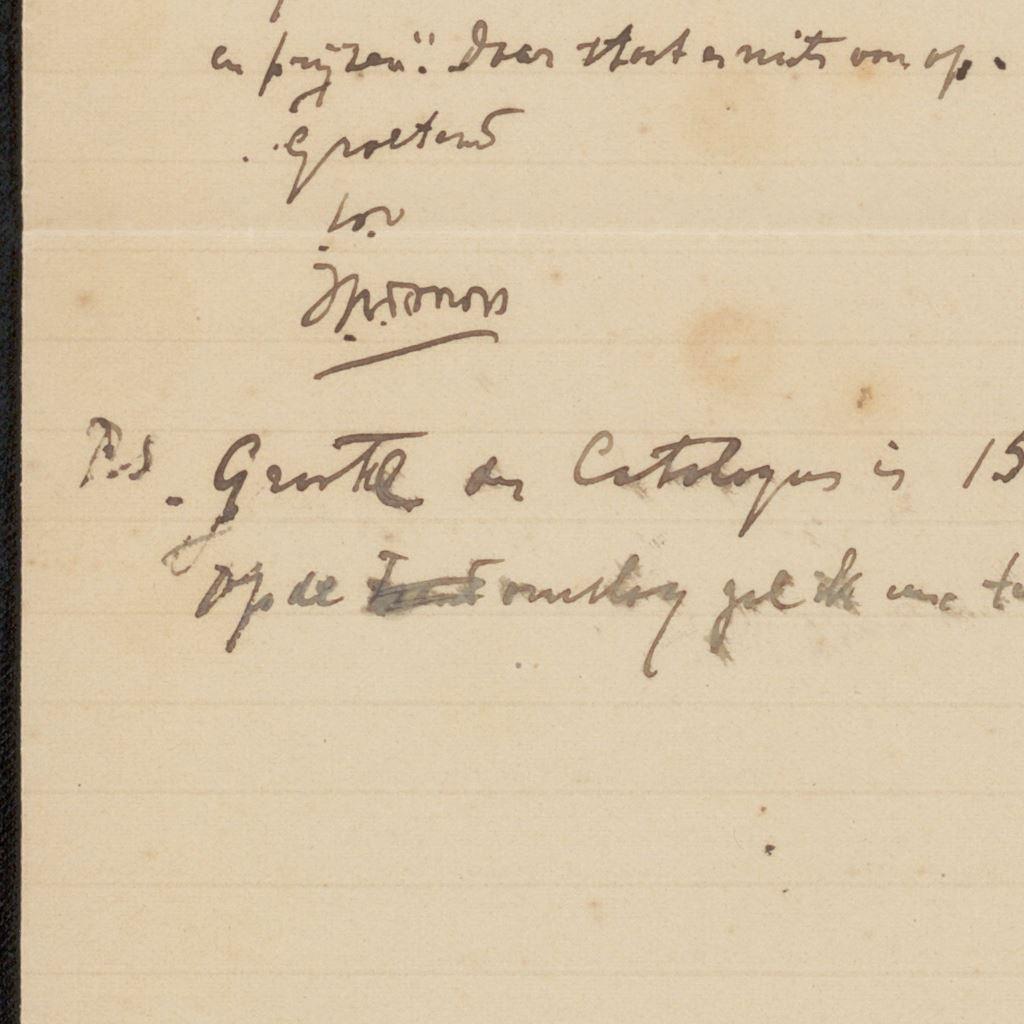 en prijzen". Daar staat er niets van op.
Groetend
t.à.v.
P.S. Grootte der Catalogus is 15
Op de omslag zal ik een